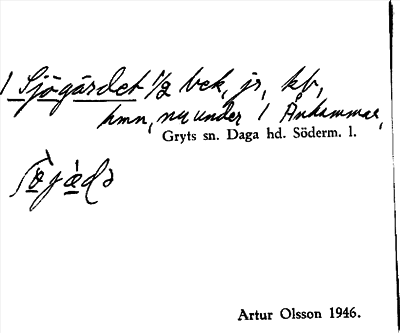 1 Sjögärdet 1/2 bck, jr, kb,
hmn, nu under 1 Änhammar,
Gryts sn. Daga hd. Söderm. l.
Artur Olsson 1946.